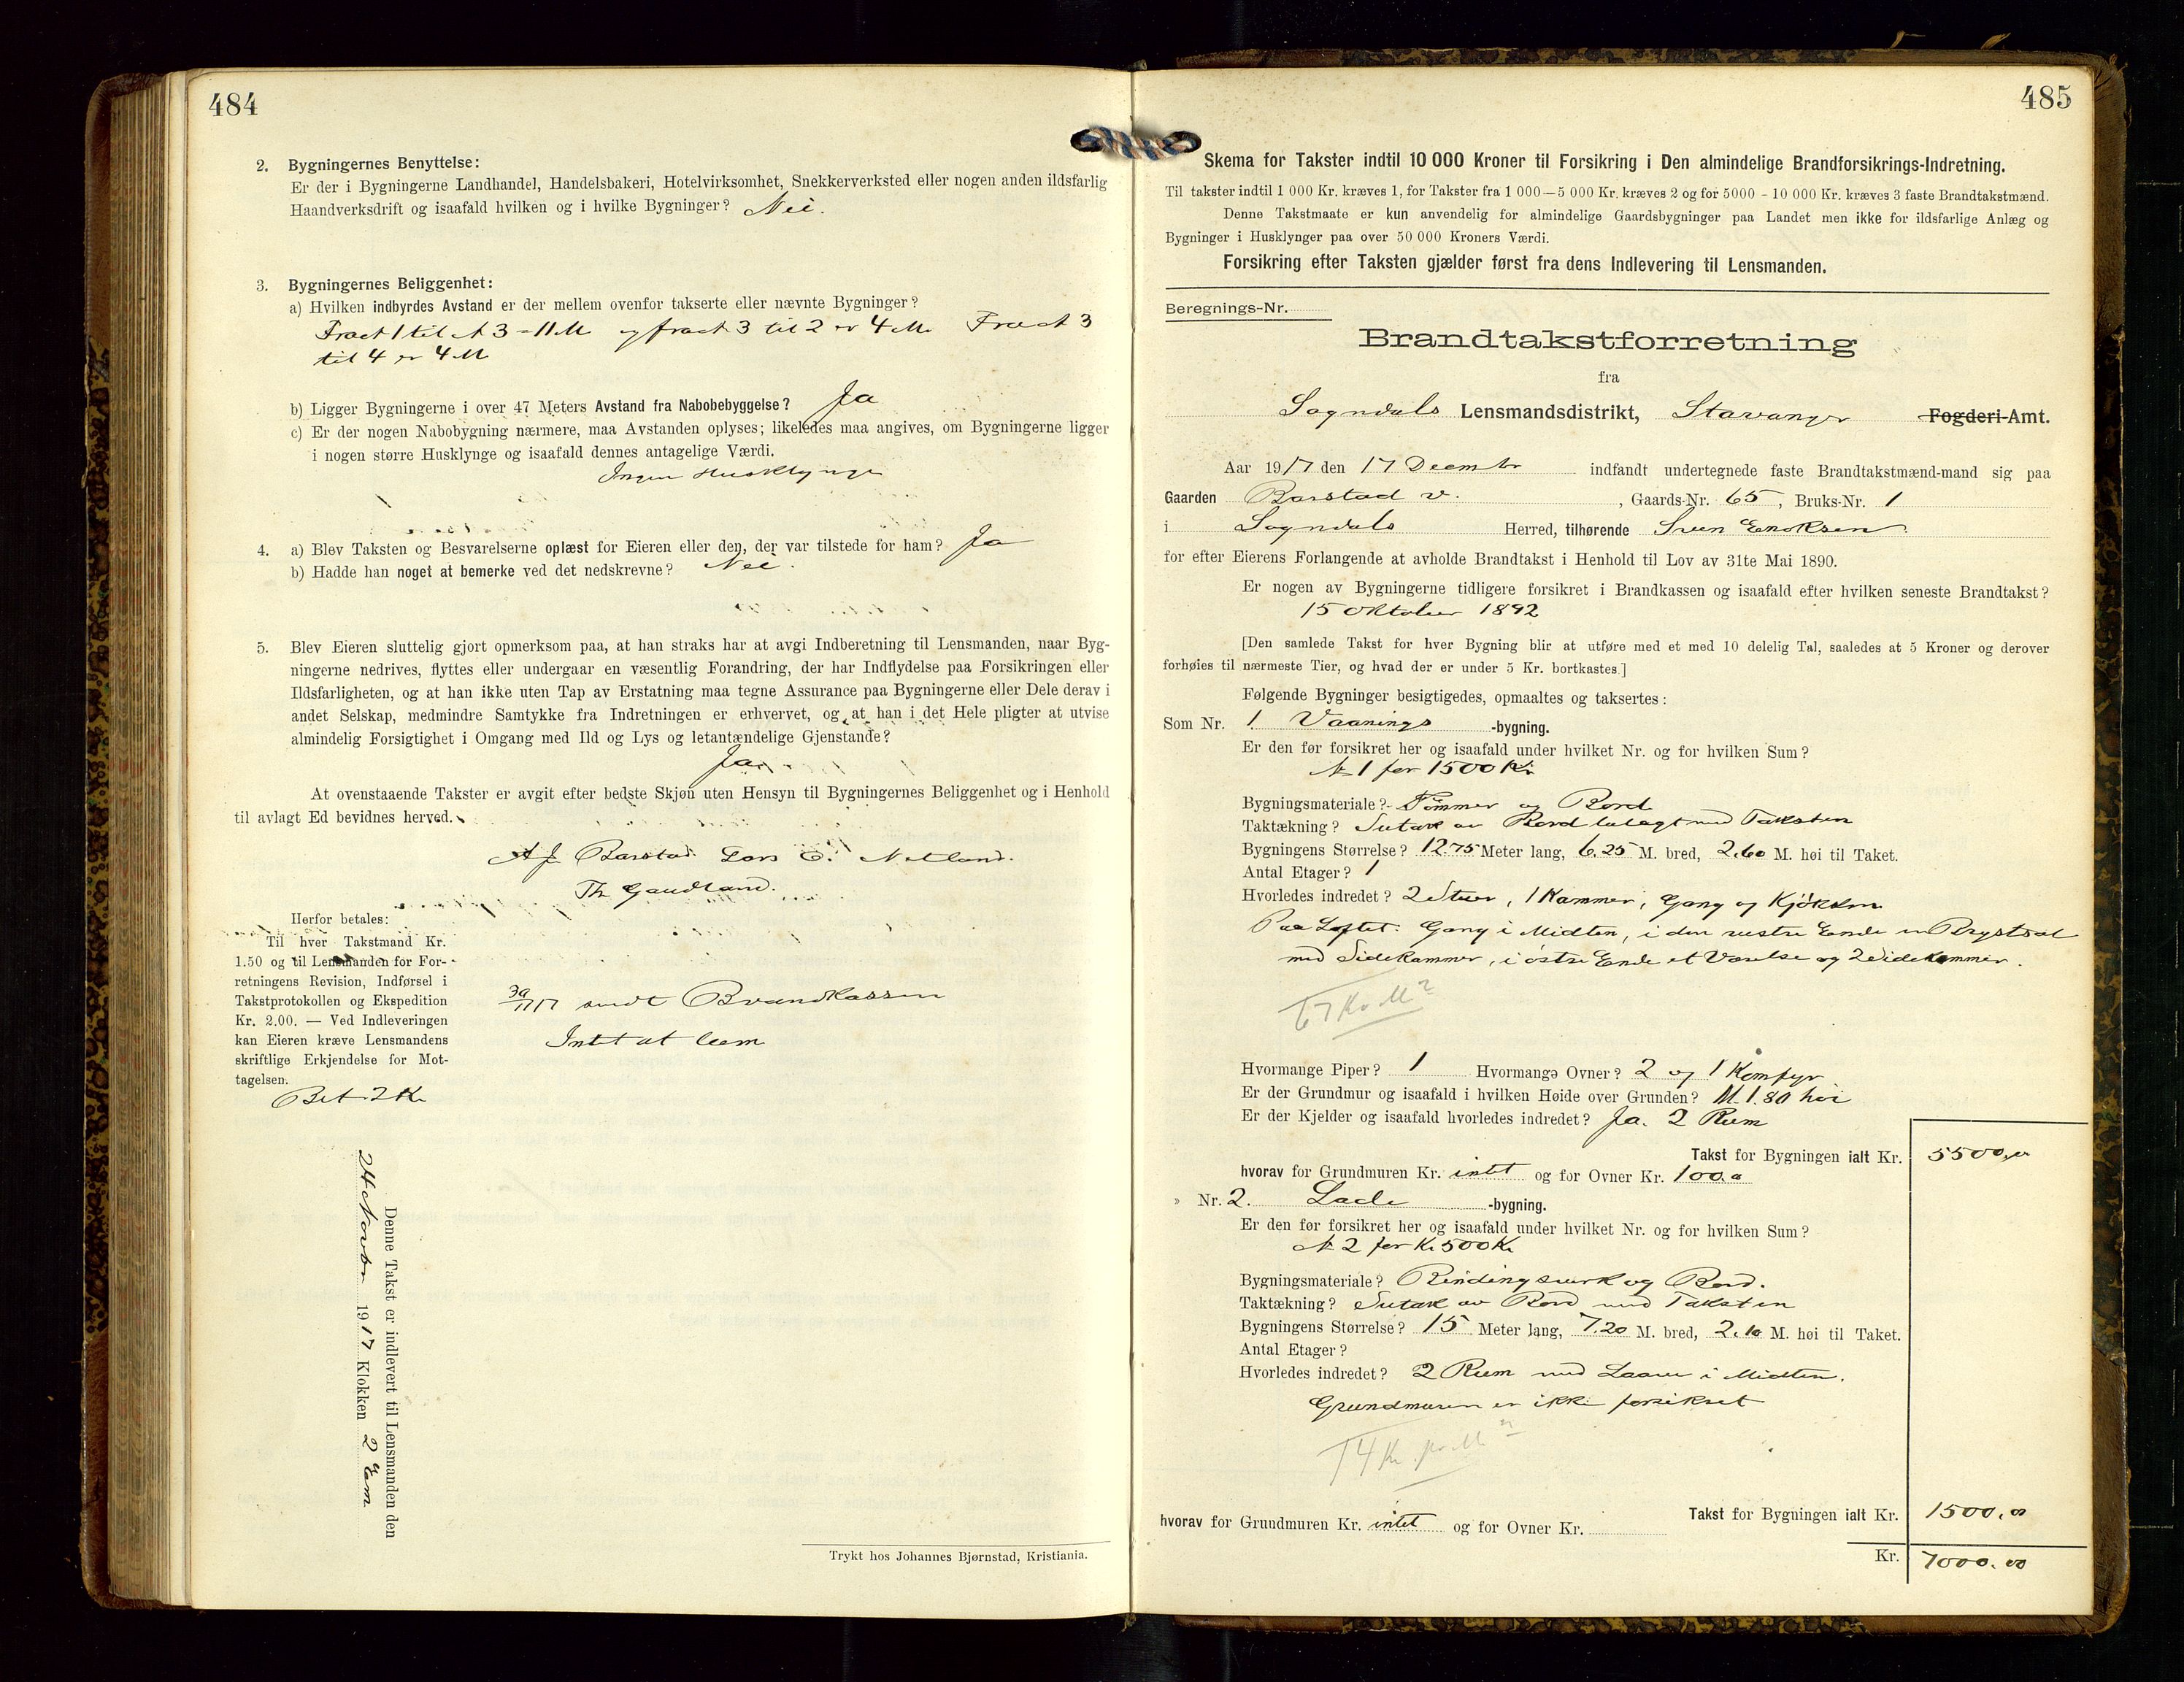 484
2. Bygningernes Benyttelse:
Er der i Bygningerne Landhandel, Handelsbakeri, Hotelvirksomhet, Snekkerverksted eller nogen anden ildsfarlig
Haandverksdrift og isaafald hvilken og i hvilke Bygninger? Nei.
3. Bygningernes Beliggenhet:
a) Hvilken indbyrdes Avstand er der mellem ovenfor takserte eller nævnte Bygninger?
1 til 3 = 11 M og 3 til 2 er 4 M. 3
til 4 er 4 M
b) Ligger Bygningerne i over 47 Meters Avstand fra Nabobebyggelse? Ja
c) Er der nogen Nabobygning nærmere, maa Avstanden oplyses; likeledes maa angives, om Bygningerne ligger
i nogen større Husklynge og isaafald dennes antagelige Værdi.
Ingen Husklynge
4. a) Blev Taksten og Besvarelserne oplæst for Eieren eller den, der var tilstede for ham? Ja
b) Hadde han noget at bemerke ved det nedskrevne? Nei.
5. Blev Eieren sluttelig gjort opmerksom paa, at han straks har at avgi Indberetning til Lensmanden, naar Byg-
ningerne nedrives, flyttes eller undergaar en væsentlig Forandring, der har Indflydelse paa Forsikringen eller
Ildsfarligheten, og at han ikke uten Tap av Erstatning maa tegne Assurance paa Bygningerne eller Dele derav i
andet Selskap, medmindre Samtykke fra Indretningen er erhvervet, og at han i det Hele pligter at utvise
almindelig Forsigtighet i Omgang med Ild og Lys og letantændelige Gjenstande?
Ja
At ovenstaaende Takster er avgit efter bedste Skjøn uten Hensyn til Bygningernes Beliggenhet og i Henhold
til avlagt Ed bevidnes herved.
A J Barstad. Lars E. Netland.
Th Gaudland.
Herfor betales:
Til hver Takstmand Kr.
1.50 og til Lensmanden for For-
retningens Revision, Indførsel i
Takstprotokollen og Ekspedition
Kr. 2.00. — Ved Indleveringen
kan Eieren kræve Lensmandens
skriftlige Erkjendelse for Mot-
tagelsen.
Bet 2 Kr
sendt Brandkassen
Intet at bem
Denne Takst er indlevert til Lensmanden den
24 Novbr 1917 Klokken 2 Em
Trykt hos Johannes Bjørnstad, Kristiania.
485
Skema for Takster indtil 10 000 Kroner til Forsikring i Den almindelige Brandforsikrings-Indretning.
Til takster indtil 1 000 Kr. kræves 1, for Takster fra 1 000—5 000 Kr. kræves 2 og for 5000 - 10 000 Kr. kræves 3 faste Brandtakstmænd.
Denne Takstmaate er kun anvendelig for almindelige Gaardsbygninger paa Landet men ikke for ildsfarlige Anlæg og
Bygninger i Husklynger paa over 50 000 Kroners Værdi.
Forsikring efter Taksten gjælder først fra dens Indlevering til Lensmanden.
Beregnings-Nr.
Brandtakstforretning
fra
Sogndals Lensmandsdistrikt, Stavanger Fogderi-Amt.
Aar 1917 den 17 Decembr indfandt undertegnede faste Brandtakstmænd-mand sig paa
Gaarden Barstad v. , Gaards-Nr. 65, Bruks-Nr. 1
i Sogndals Herred, tilhørende Sven Enoksen
for efter Eierens Forlangende at avholde Brandtakst i Henhold til Lov av 31te Mai 1890.
Er nogen av Bygningerne tidligere forsikret i Brandkassen og isaafald efter hvilken seneste Brandtakst?
15 Oktober 1892
[Den samlede Takst for hver Bygning blir at utføre med et med 10 delelig Tal, saaledes at 5 Kroner og derover
forhøies til nærmeste Tier, og hvad der er under 5 Kr. bortkastes.]
Følgende Bygninger besigtigedes, opmaaltes og taksertes:
Som Nr. 1 Vaanings -bygning.
Er den før forsikret her og isaafald under hvilket Nr. og for hvilken Sum?
No 1 for 1500 Kr
Bygningsmateriale? Tømmer og Bord
Taktækning? Sutak av Bord belagt med Taksten
Bygningens Størrelse? 12.75 Meter lang, 6.25 M. bred, 2.60 M. høi til Taket.
Antal Etager? 1
Hvorledes indredet? 2 Stuer, 1 Kammer, Gang og Kjøkken
Paa Loftet: Gang i Midten, i den vestre Ende en Brystsal
med Sidekammer, i østre Ende et Værelse og 2 Sidekammer.
67 Kr M²
Hvormange Piper? 1 Hvormange Ovner? 2 og 1 Komfyr
Er der Grundmur og isaafald i hvilken Høide over Grunden? M 1.80 høi
Er der Kjelder og isaafald hvorledes indredet? Ja. 2 Rum
Takst for Bygningen ialt Kr. 5500,00
hvorav for Grundmuren Kr. intet og for Ovner Kr. 100.0
» Nr. 2. Lade -bygning.
Er den før forsikret her og isaafald under hvilket Nr. og for hvilken Sum?
No 2 for Kr 500 Kr
Bygningsmateriale? Bindingsverk og Bord.
Taktækning? Sutak av Bord med Taksten
Bygningens Størrelse? 15 Meter lang, 7.20 M. bred, 2.10 M. høi til Taket.
Antal Etager?
Hvorledes indredet? 2 Rum med Laave i Midten.
Grundmuren er ikke forsikret
14 Kr. pr M²
Takst for Bygningen ialt Kr. 1500.00
hvorav for Grundmuren Kr. intet og for Ovner Kr.
Kr. 7000.00